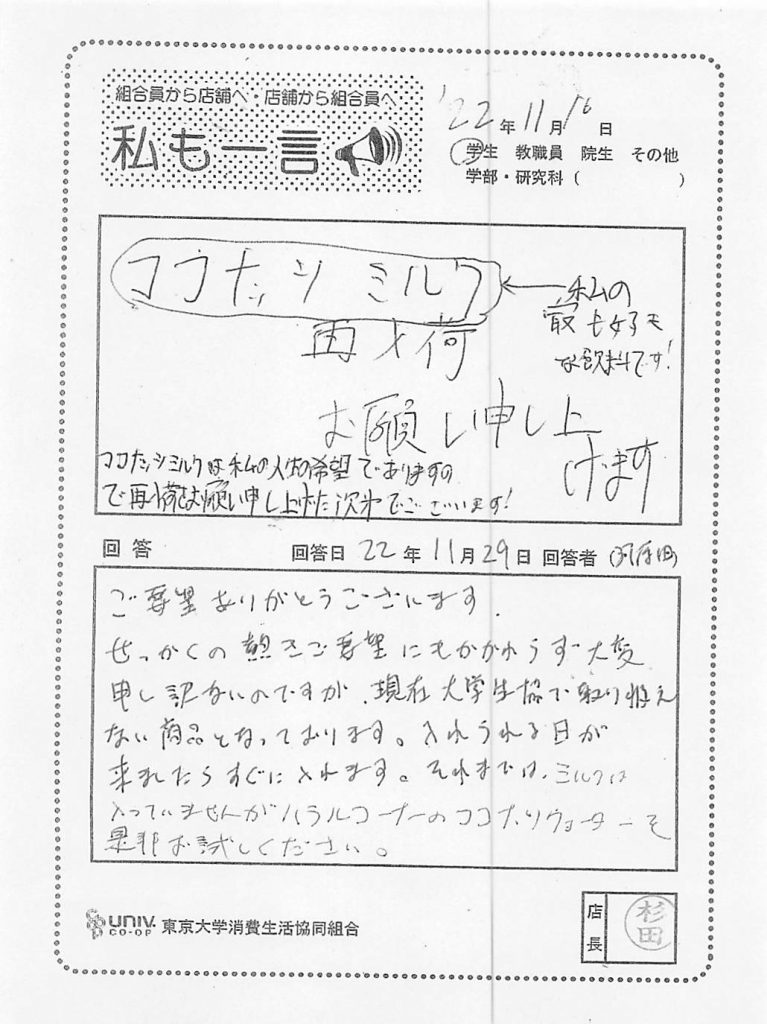 組合員から店舗へ・店舗から組合員へ
私も一言
'22年11月16日
学生 教職員 院生 その他
学部・研究科( )
ココナッツミルク
←私の
最も好き
な飲料です!
再入荷
お願い申し上
げます
ココナッツミルクは私の人生の希望でありますの
で再入荷をお願い申し上げた次第でございます!
回答 回答日 22年11月29日 回答者
ご要望ありがとうございます.
せっかくの熱きご要望にもかかわらず大変
申し訳ないのですが、現在大学生協で取り扱え
ない商品となっております。入れられる日が
来ましたらすぐに入れます。それまでは、ミルクは
入っていませんがハラルコーナーのココナッツウォーターを
是非お試しください。
UNIV.
CO-OP 東京大学消費生活協同組合
店長
杉田